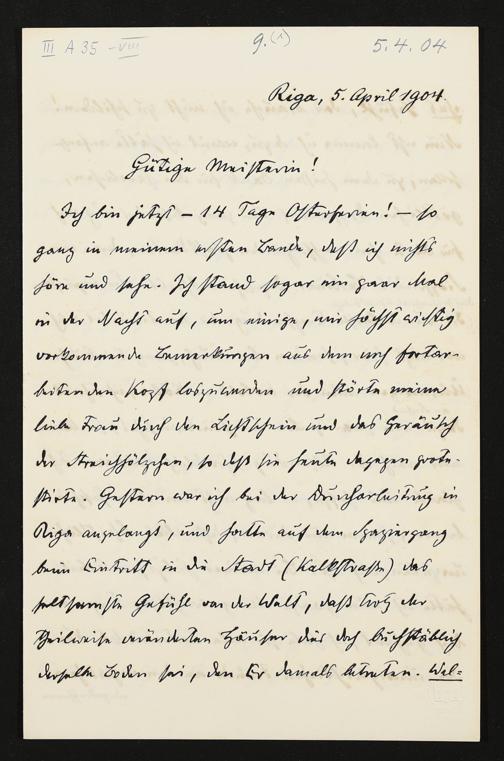 III A 35 - VIII
9. (1)
5. 4. 04
Riga, 5. April 1904.
Gütige Meisterin!
Ich bin jetzt – 14 Tage Osterferien! – so
ganz in meinem ersten Bande, daß ich nichts
höre und sehe. Ich stand sogar ein paar Mal
in der Nacht auf, um einige, mir höchst wichtig
vorkommende Bemerkungen aus dem noch fortar-
beitenden Kopf loszuwerden und störte meine
liebe Frau durch den Lichtschein und das Geräusch
der Streichhölzchen, so daß sie heute dagegen prote-
stirte. Gestern war ich bei der Durcharbeitung in
Riga angelangt, und hatte auf dem Spaziergang
beim Eintritt in die Stadt (Kalkstraße) das
seltsamste Gefühl von der Welt, daß trotz der
theilweise veränderten Häuser dies doch buchstäblich
derselbe Boden sei, den Er damals betreten. Wel=